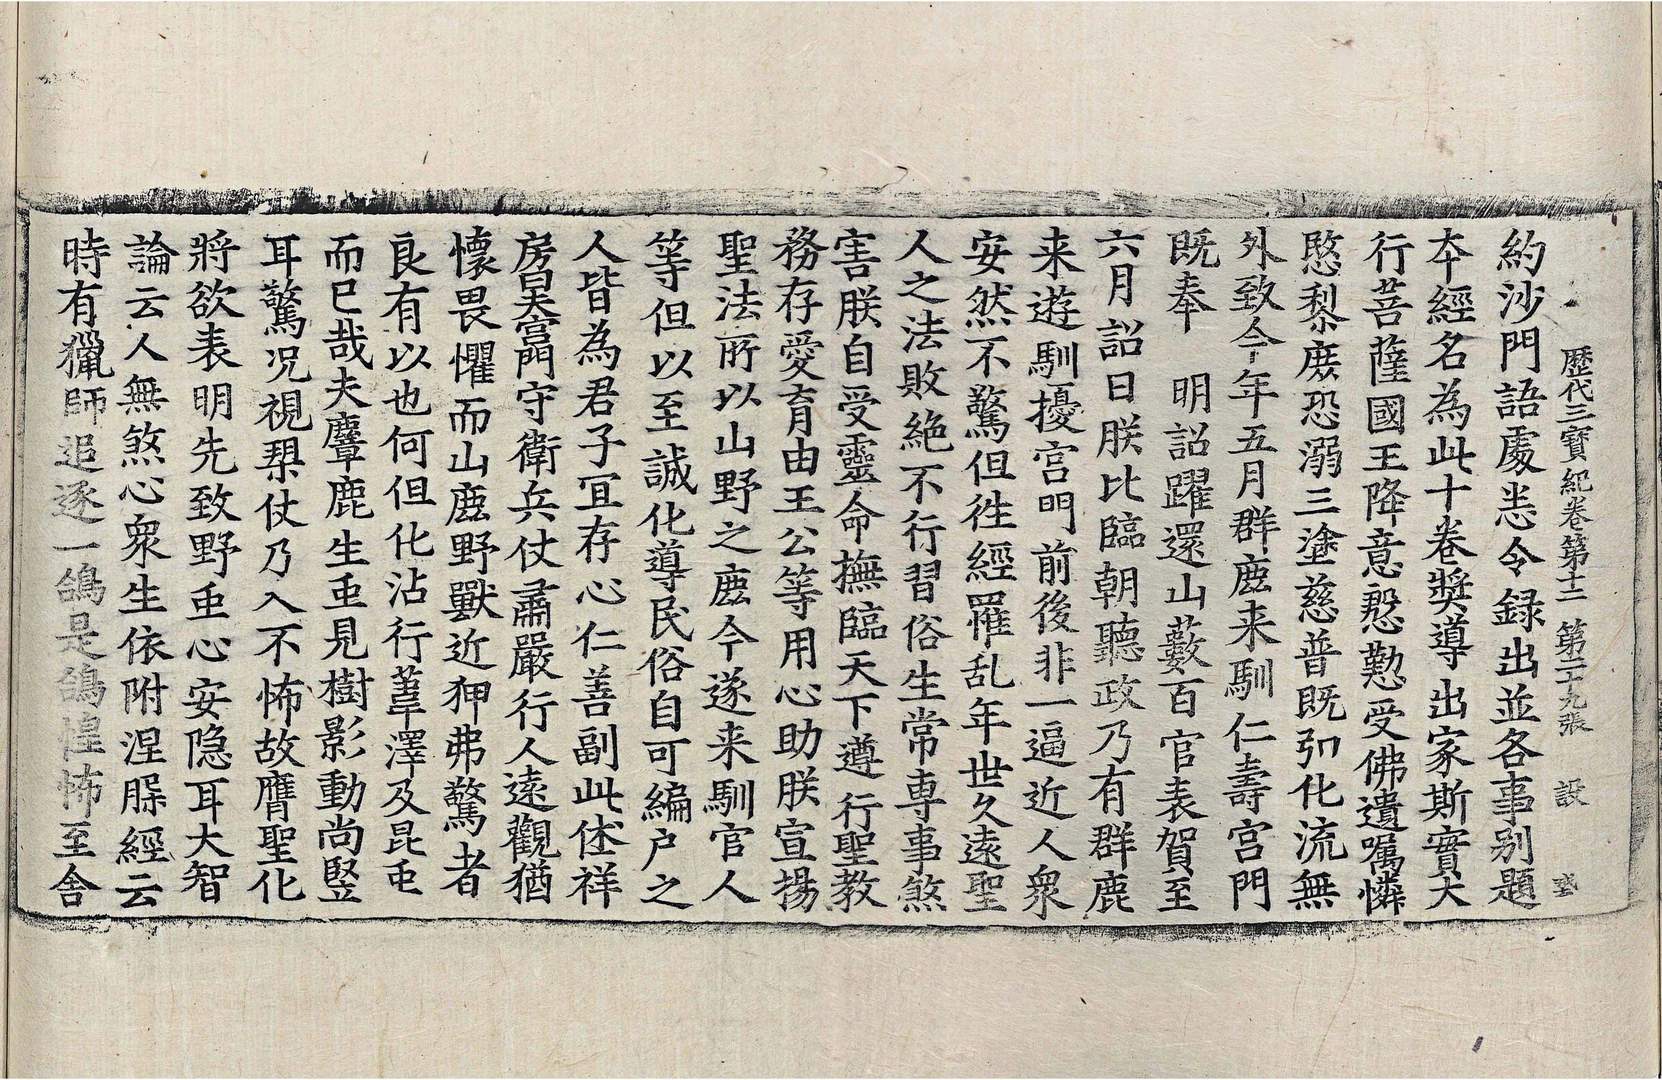 歷代三寶紀卷第十二 第二十九張 設
約沙門語處悉令録出並各事別題
本經名為此十卷奬導出家斯實大
行菩薩國王降意慇懃受佛遺囑憐
愍黎庶恐溺三塗慈普既弘化流無
外致今年五月群鹿来馴仁壽宮門
既奉 明詔躍還山藪百官表賀至
六月詔曰朕比臨朝聽政乃有群鹿
来遊馴擾宮門前後非一逼近人衆
安然不驚但徃經羅乱年世久遠聖
人之法敗絶不行習俗生常専事煞
害朕自受靈命撫臨天下遵行聖教
務存愛育由王公等用心助朕宣揚
聖法所以山野之鹿今遂来馴官人
等但以至誠化導民俗自可編户之
人皆為君子冝存心仁善副此休祥
房昊當門守衛兵仗肅嚴行人遠觀猶
懐畏懼而山鹿野獸近狎弗驚者
良有以也何但化沾行葦澤及昆虫
而已哉夫麞鹿生重見樹影動尚竪
耳驚况視槊仗乃入不怖故膺聖化
將欲表明先致野重心安隐耳大智
論云人無煞心衆生依附涅槃經云
時有獵師追逐一鴿是鴿惶怖至舍